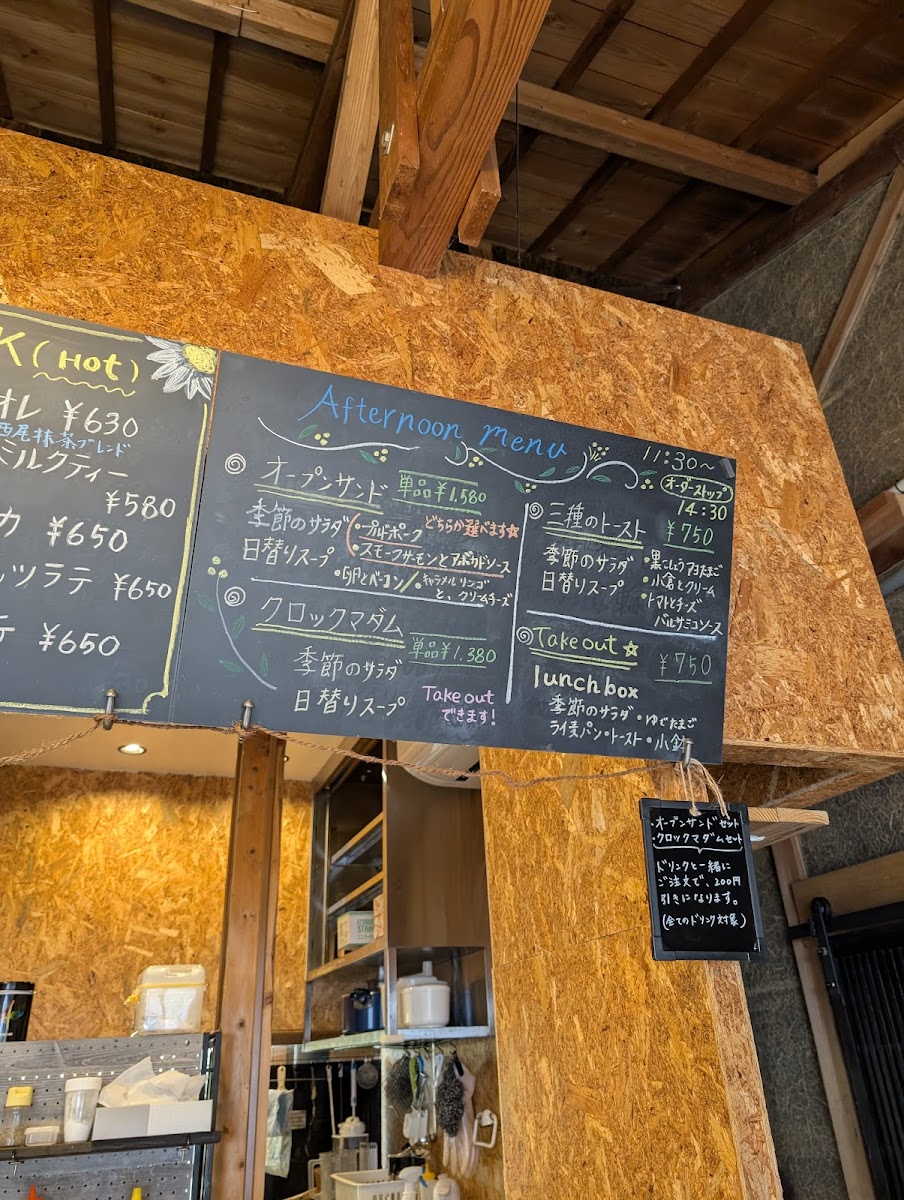 K (HOT)
オレ ¥630
西尾抹茶ブレンド
ミルクティー
¥580
カ ¥650
ツラテ ¥650
テ ¥650
Afternoon menu
11:30〜
オーダーストップ
14:30
オープンサンド 単品¥1.580
季節のサラダ
日替りスープ
どちらか選べます☆
・プルドポーク
・スモークサーモンとアボカドソース
・卵とベーコン/・キャラメルリンゴ
と、クリームチーズ
クロックマダム 単品¥1.380
季節のサラダ
日替りスープ
Take out
できます!
三種のトースト ¥750
季節のサラダ
日替りスープ
・黒こしょうアヨたまご
・小倉とクリーム
・トマトとチーズ
バルサミコソース
Take out☆ ¥750
lunch box
季節のサラダ・ゆでたまご
ライ麦パン・トースト・小鉢
・オープンサンドセット
・クロックマダムセット
ドリンクと一緒に
ご注文で、200円
引きになります。
(全てのドリンク対象)